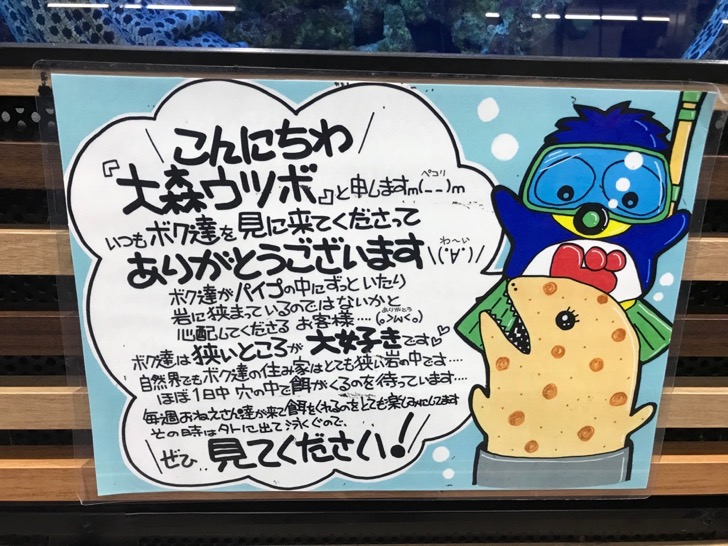 こんにちわ
『大森ウツボ』と申しますm(__)m
ペコリ
いつもボク達を見に来てくださって
ありがとうございます\(.∀.)/
わ〜い
ボク達がパイプの中にずっといたり
岩に狭まっているのではないかと
心配してくださる お客様‥‥(๑>ω<๑)
ありがとう
ボク達は狭いところが大好きです♡
自然界でもボク達の住み家はとても狭い岩の中です‥‥
ほぼ1日中 穴の中で餌がくるのを待っています‥‥
毎週おねえさん達が来て餌をくれるのをとても楽しみにしてます
その時は外に出て泳ぐので、
ぜひ 見てください!